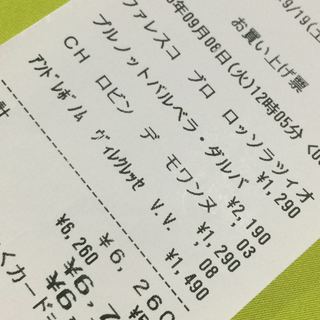 9/19(土
お買い上げ票
09月08日(火)12時05分
ファレスコ ブロ ロッソラツィオ
¥1,290
ブルノットバルベラ・ダルバ
¥2,190
CH ロビン デ モワンヌ 03
¥1,290
アンドレボノム ヴィレクレッセ V.V. 08
¥1,490
計
¥6,260
¥6,260
くカード